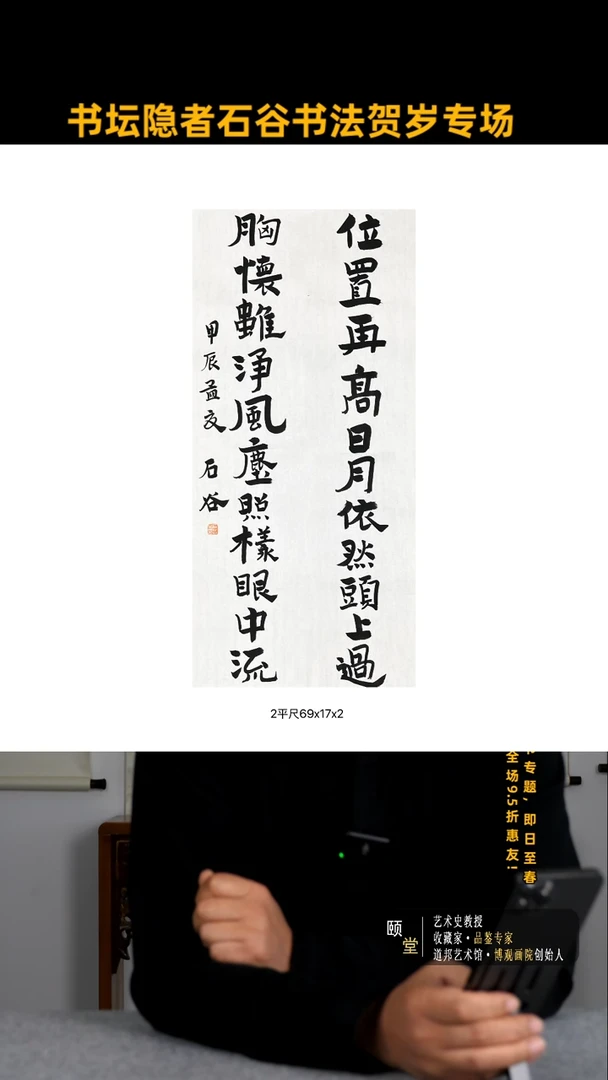 书坛隐者石谷书法贺岁专场
位置再高日月依然頭上過
胸懷雖淨風塵照樣眼中流
甲辰孟夏 石谷
2平尺69x17x2
专题，即日至春
全场9.5折惠友！
颐堂
艺术史教授
收藏家·品鉴专家
道邦艺术馆·博观画院创始人